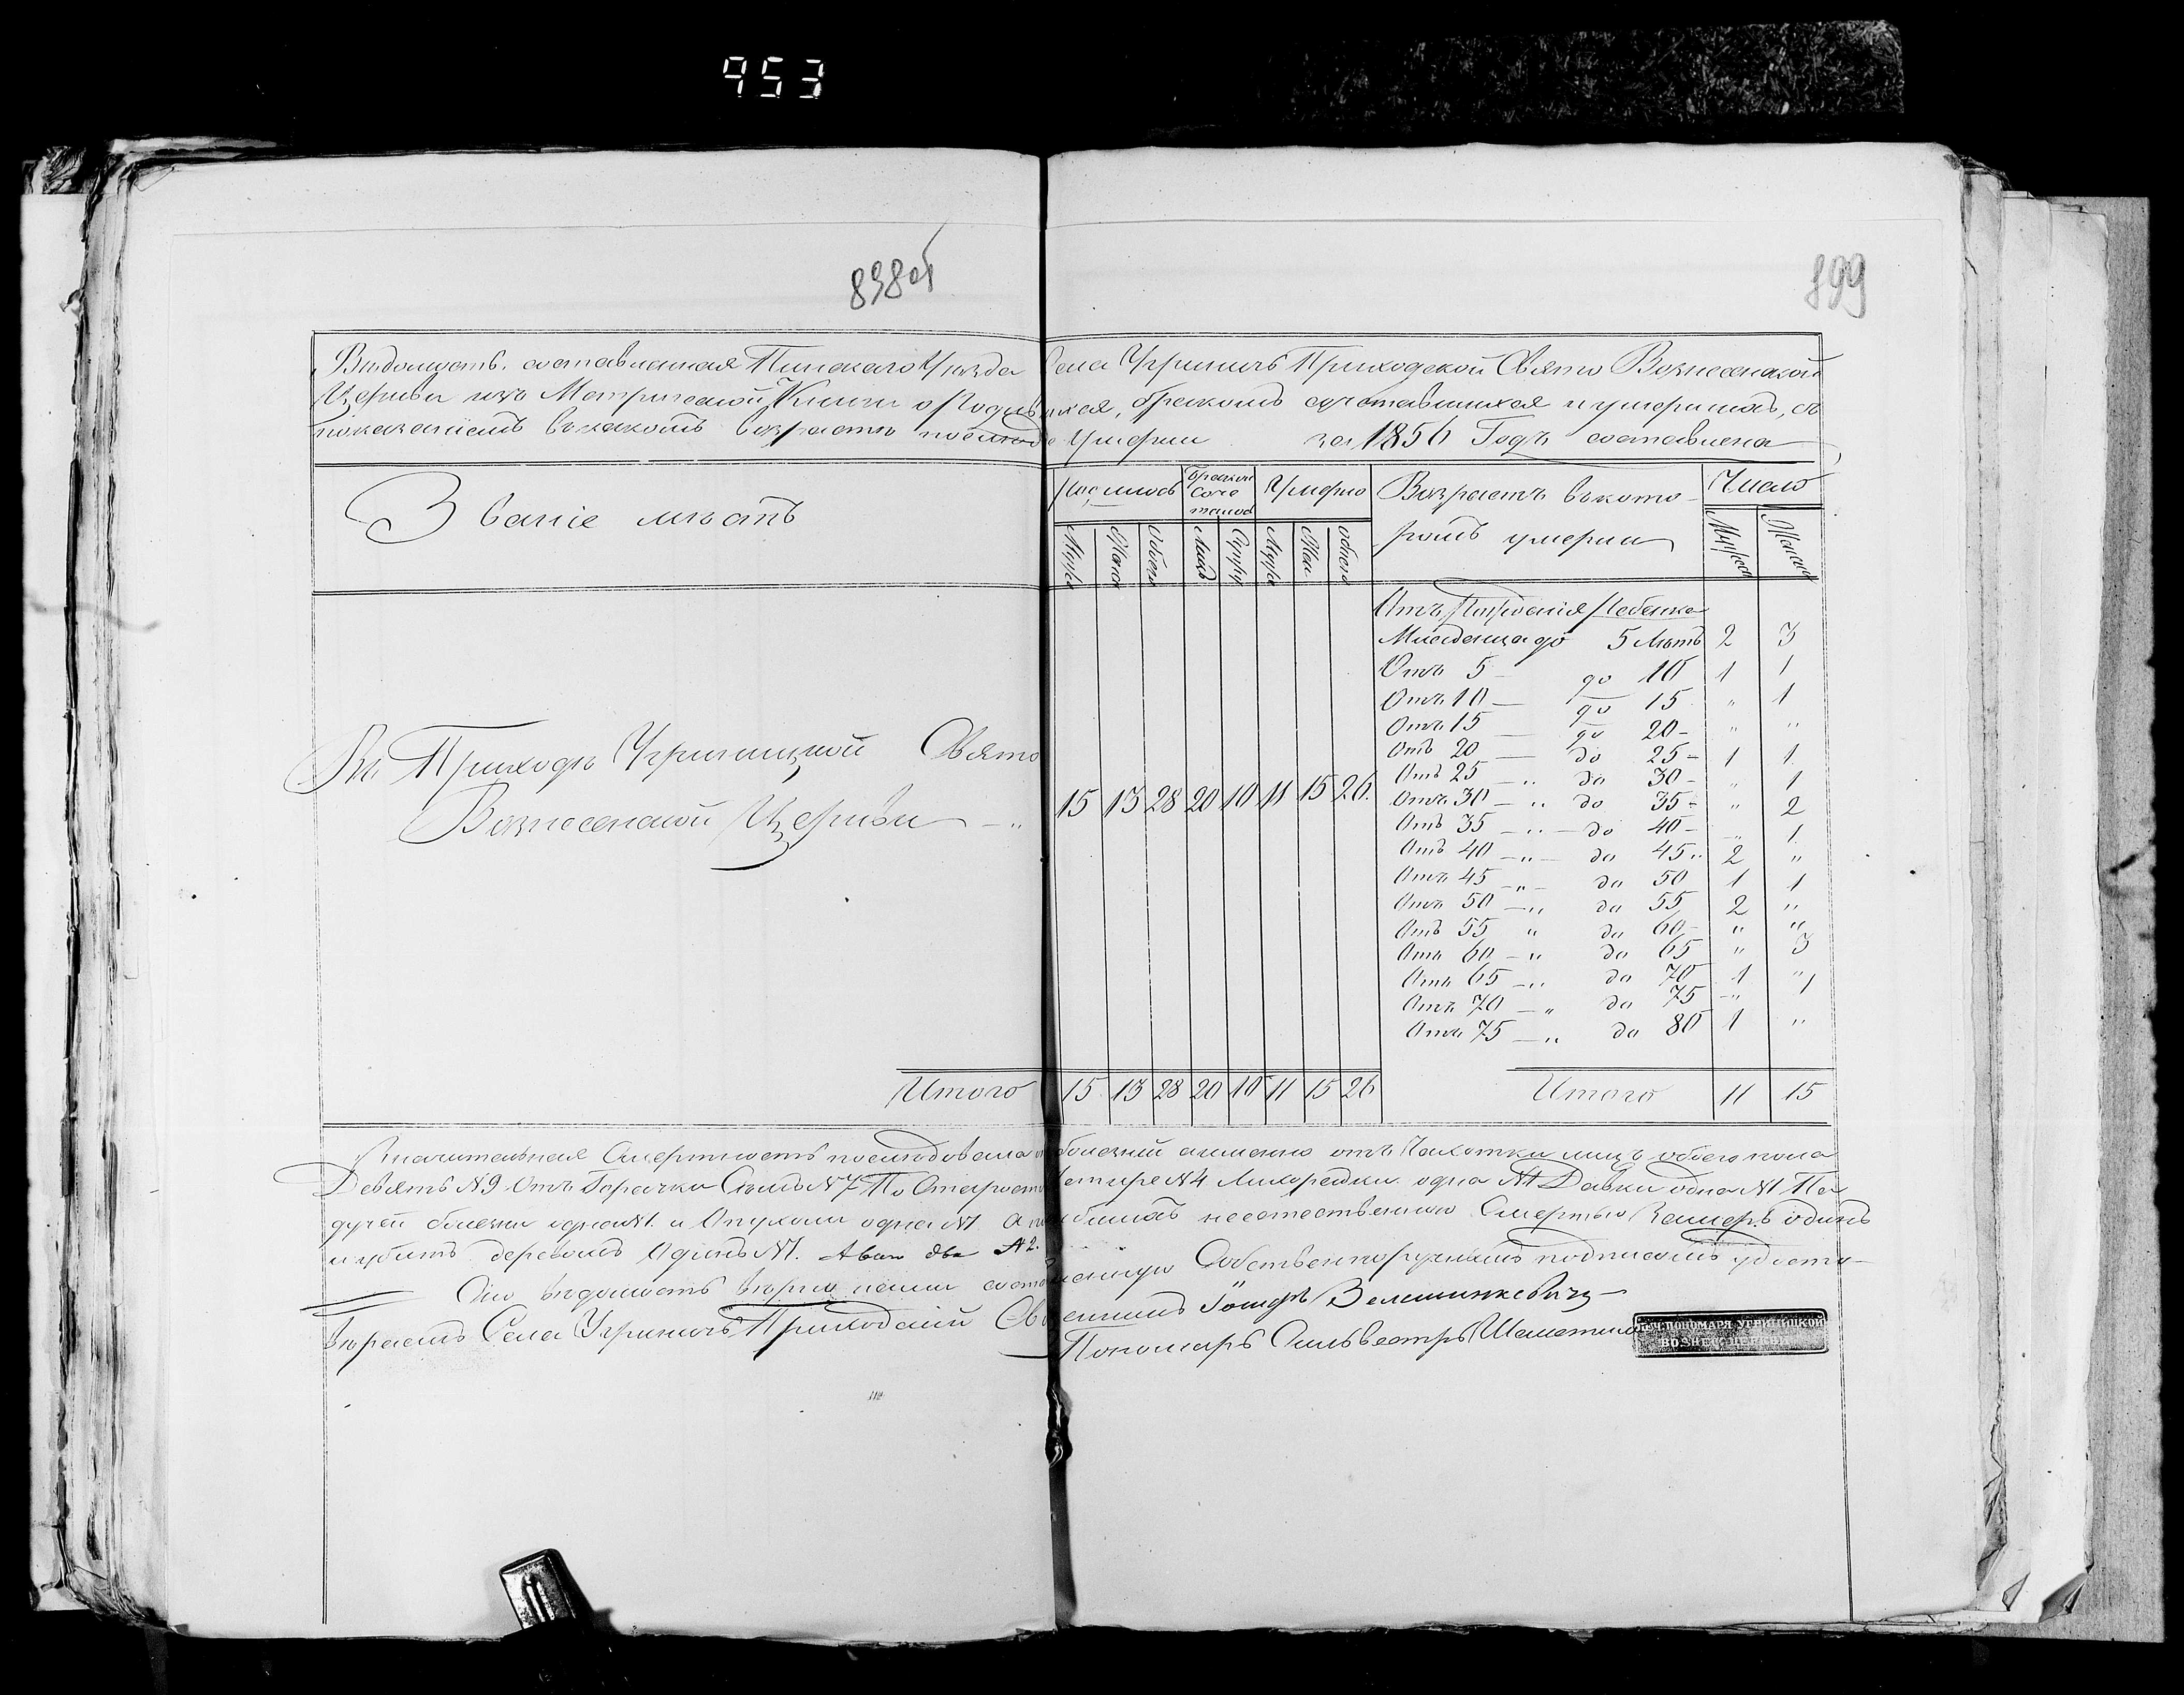 953
898об
899
Вѣдомость. составленная Пинскаго Уѣзда Села Угриничъ Приходской Свято Вознесенской
Церкви изъ Метрической Книги о Родившихся, бракомъ сочетавшихся и умершихъ, съ
показаніемъ въ какомъ возрастѣ померли за 1856 Годъ составлена
Званіе мѣстъ
Родилось
Бракомъ Соче талось
Умерло
Возрастъ въ кото-
ромъ умерли
Число
Муже Женск Обоего Лицъ Супру Муже Жен Обоего Мужеск Женска
Отъ Рожденія Ребенка
Младенца до 5 Лѣтъ 2 3
Отъ 5 - до 10 1 1
Отъ 10 — до 15 " 1
Отъ 15 — до 20 - " "
Отъ 20 — до 25 - 1 1
Отъ 25 — " до 30 - " 1
Отъ 30 — " до 35 - " 2
Отъ 35 — " — до 40 - " 1
Отъ 40 — " — до 45 " 2 "
Отъ 45 — " — до 50 1 1
Отъ 50 — " до 55 2 "
Отъ 55 " до 60 - " "
Отъ 60 — " до 65 " 3
Отъ 65 — " до 70 1 "
Отъ 70 — " до 75 - " 1
Отъ 75 — " до 80 1 "
Въ Приходѣ Угриницкой Свято
Вознесенской Церкви — " 15 13 28 20 10 11 15 26.
Итого 15 13 28 20 10 11 15 26 Итого 11 15
Значительная Смертность последовала болезній а именно отъ Чахотки лицъ обоего пола
Девять №9 Отъ Горячки Семь №7 По Старости Четыре №4 Лихорадки одна №1 Давки одна №1 Па
дучей болезни одна №1. и Опухоли одна №1 а неестественною Смертью Замерзъ одинъ
и убитъ деревомъ Одинъ №1. два №2.
Сію вѣдомость вѣрно нами составленную Собственноручнымъ подписомъ удосто-
вѣряемъ Села Угриничъ Приходскій Священникъ Іосифъ
Пономаръ Сильвестръ
ПЕЧ. ПОНОМАРЯ УГРИНИЦКОЙ
ВОЗНЕС. ЦЕРКВИ